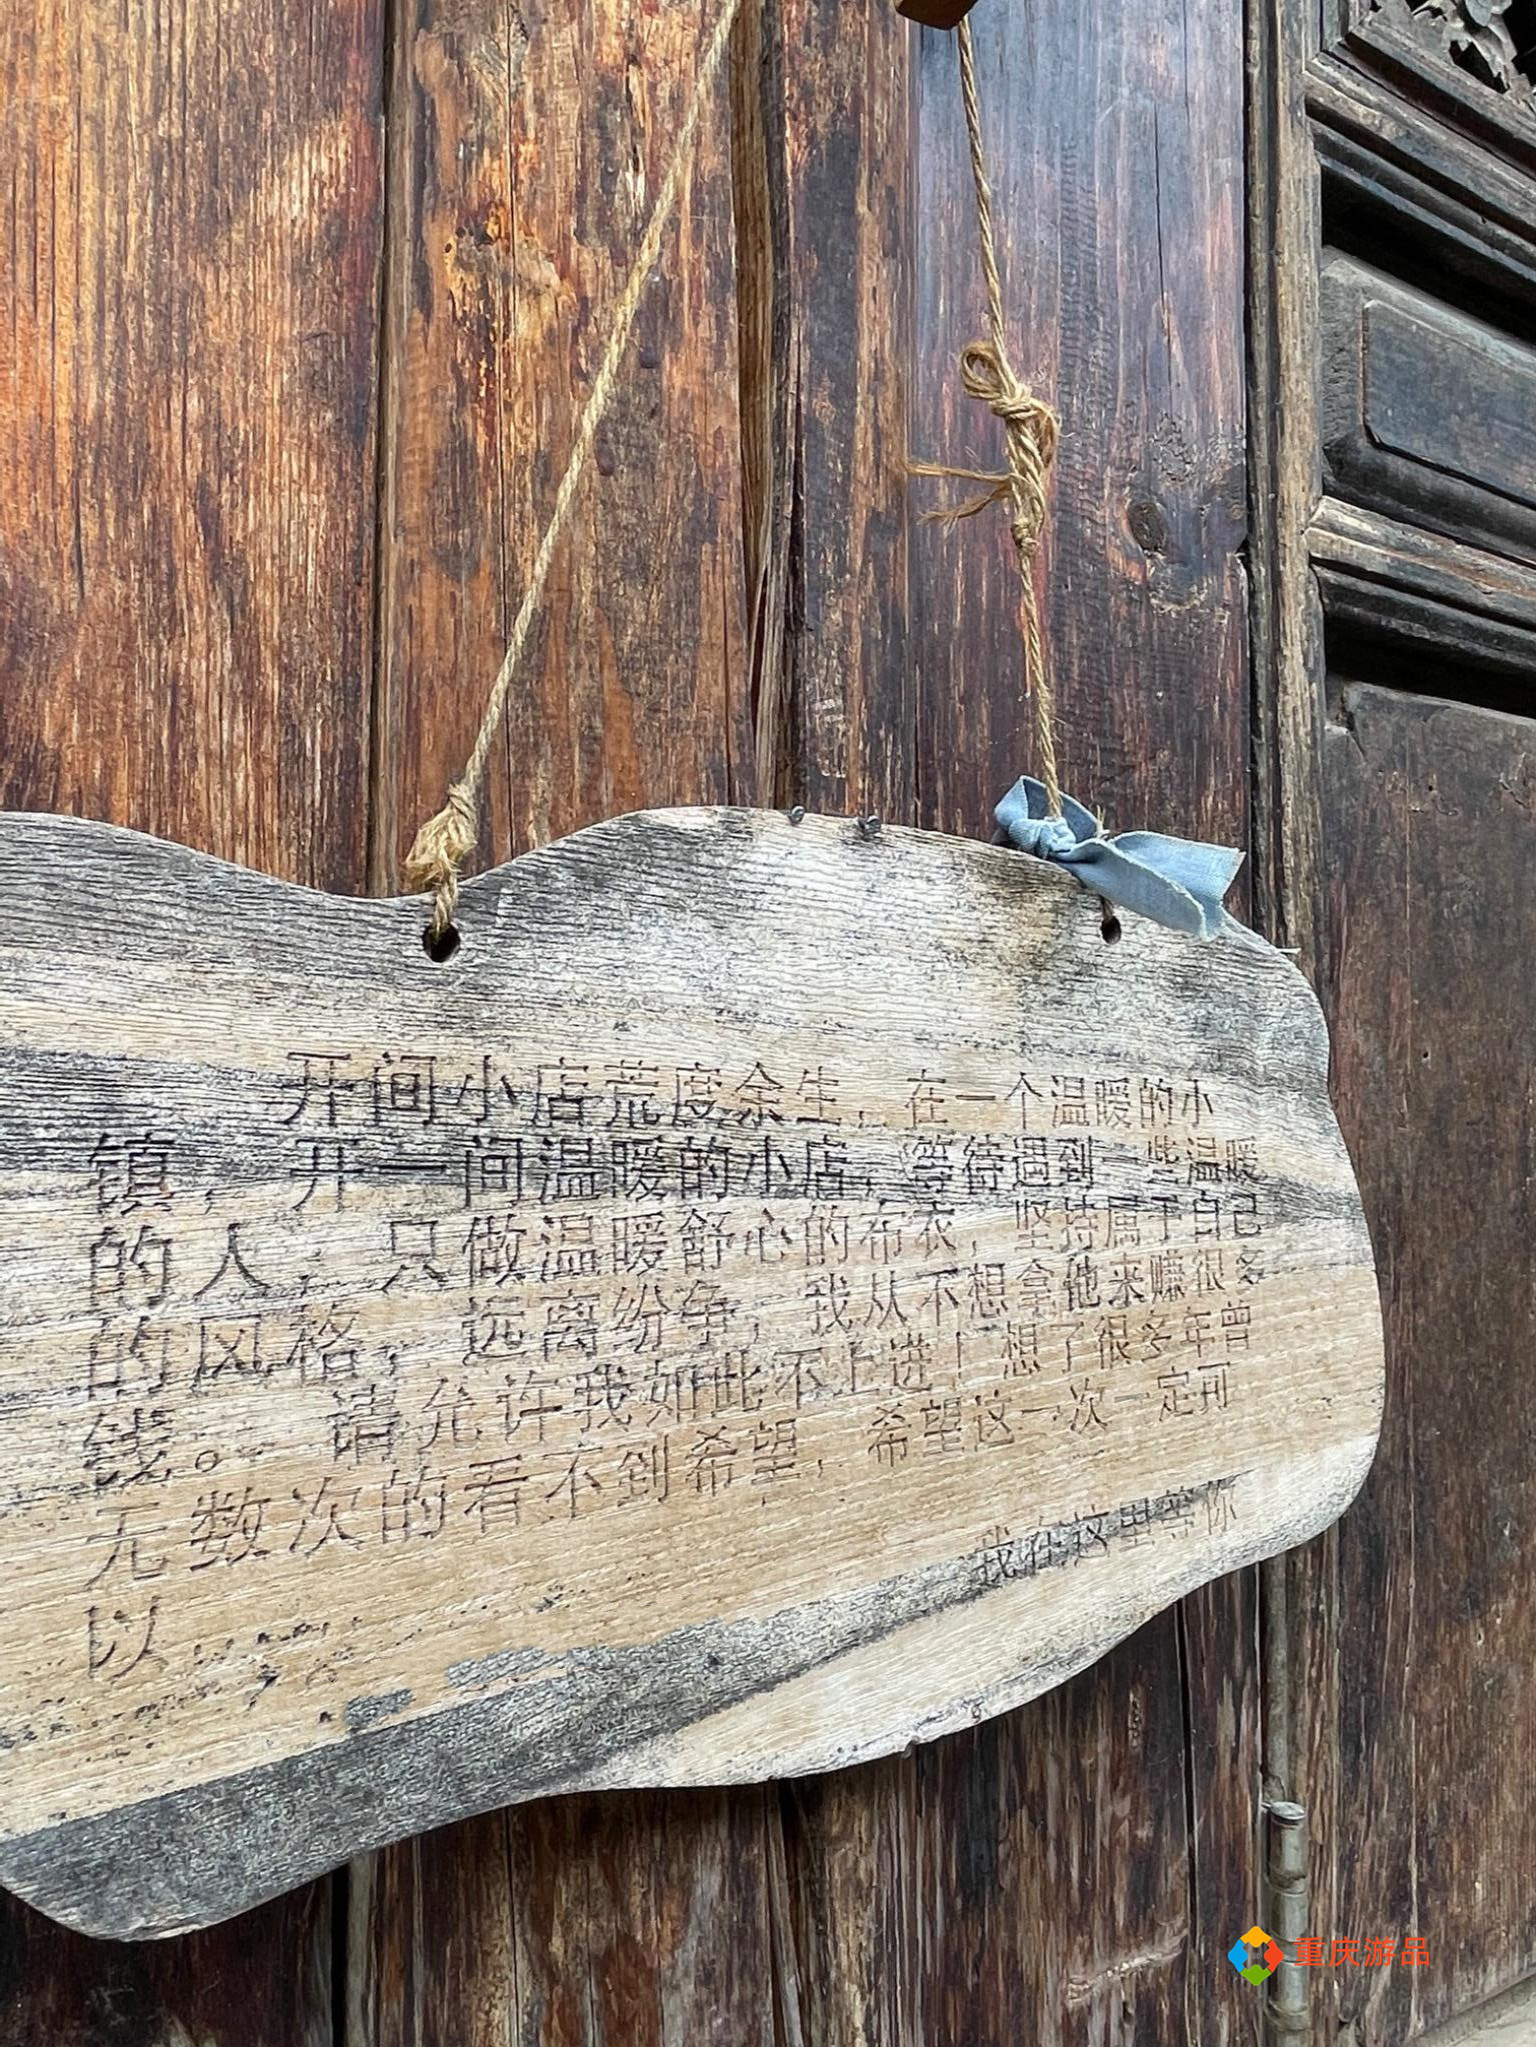 开间小店荒度余生，在一个温暖的小
镇，开一间温暖的小店，等待遇到一些温暖
的人，只做温暖舒心的布衣，坚持属于自己
的风格，远离纷争，我从不想拿他来赚很多
钱。请允许我如此不上进！想了很多年曾
无数次的看不到希望，希望这一次一定可
以
我在这里等你
重庆游品